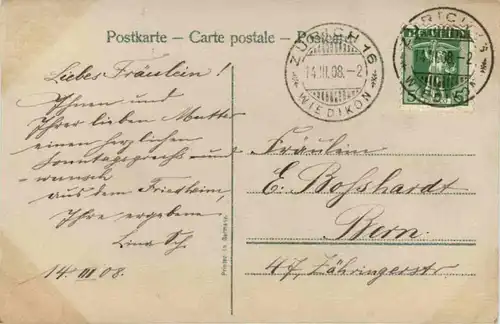 Postkarte – Carte postale – Postcard
Liebes Fräulein!
Ihnen und
Ihrer lieben Mutter
einen herzlichen
Sonntagsgruss und
wunsch
aus dem
Ihre ergebene
Lina Sch.
14. III 08.
Printed in Germany.
ZÜRICH 16
14.III.08.–2
WIEDIKON
ZÜRICH 16
14.III.08.–2
WIEDIKON
5
Fräulein
E. Bosshardt
Bern.
47, Zähringerstr.